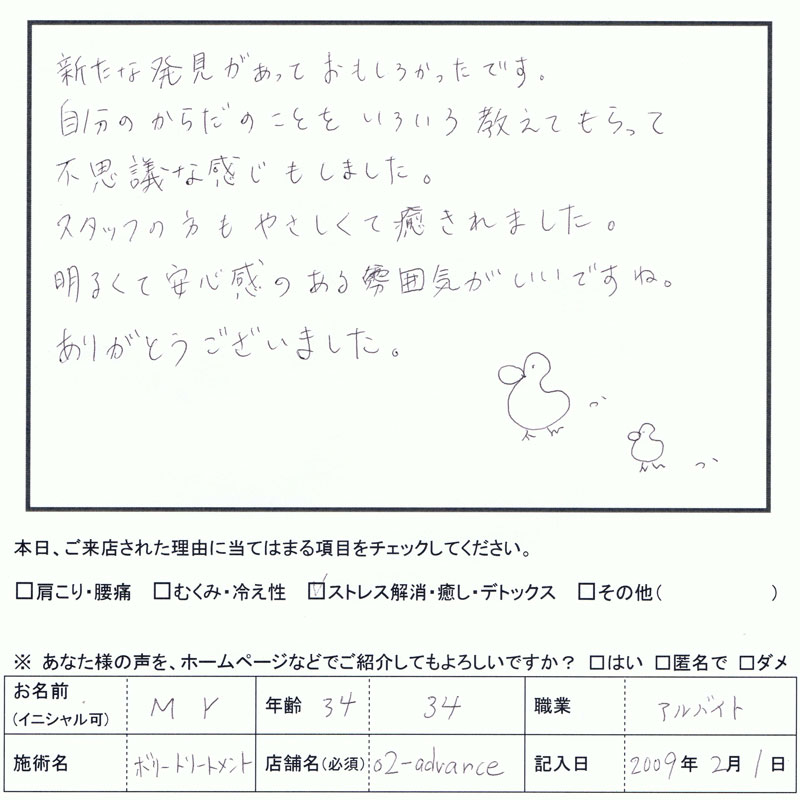 新たな発見があっておもしろかったです。
自分のからだのことをいろいろ教えてもらって
不思議な感じもしました。
スタッフの方もやさしくて癒されました。
明るくて安心感のある雰囲気がいいですね。
ありがとうございました。
本日、ご来店された理由に当てはまる項目をチェックしてください。
□肩こり・腰痛 □むくみ・冷え性 ☑ストレス解消・癒し・デトックス □その他( )
※ あなた様の声を、ホームページなどでご紹介してもよろしいですか? □はい □匿名で □ダメ
お名前 (イニシャル可) M Y 年齢 34 34 職業 アルバイト
施術名 ボリードリートメント 店舗名(必須) o2-advance 記入日 2009年 2月 1日